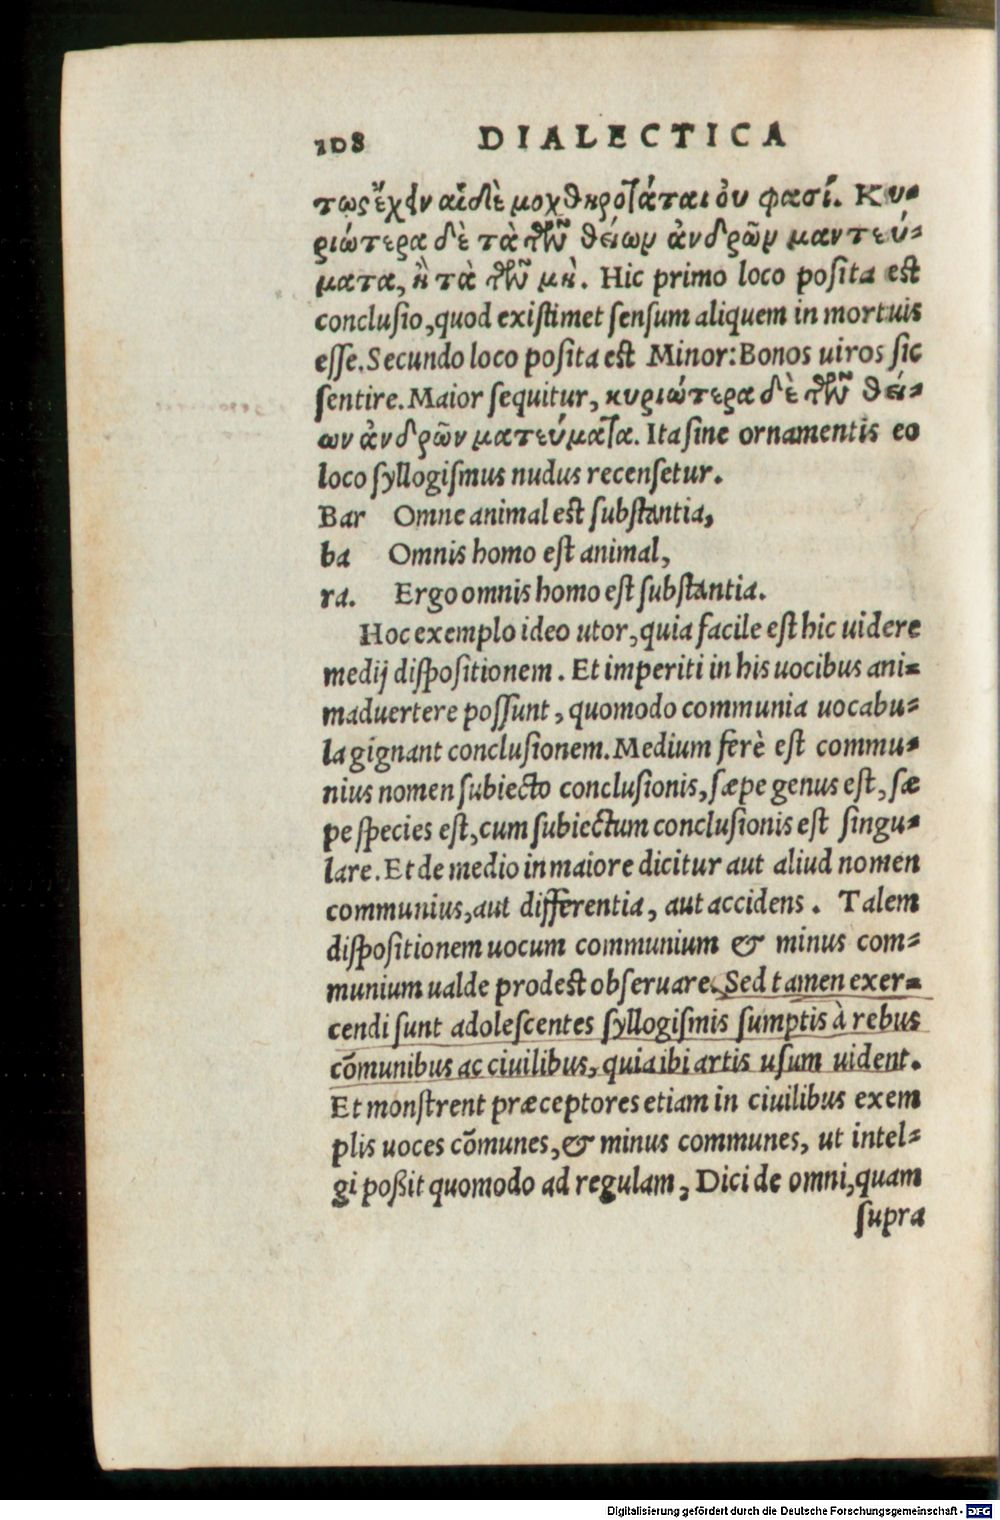 108 DIALECTICA
τως ἔχειν αἱ δὲ μοχθηρόταται οὐ φασί. Κυ-
ριώτερα δὲ τὰ τῶν θείων ἀνδρῶν μαντεύ-
ματα, ἢ τὰ τῶν μὴ. Hic primo loco posita est
conclusio, quod existimet sensum aliquem in mortuis
esse. Secundo loco posita est Minor: Bonos uiros sic
sentire. Maior sequitur, κυριώτερα δὲ τῶν θεί-
ων ἀνδρῶν ματεύματα. Ita sine ornamentis eo
loco syllogismus nudus recensetur.
Bar Omne animal est substantia,
ba Omnis homo est animal,
ra. Ergo omnis homo est substantia.
Hoc exemplo ideo utor, quia facile est hic uidere
medij dispositionem. Et imperiti in his uocibus ani-
maduertere possunt, quomodo communia uocabu-
la gignant conclusionem. Medium ferè est commu-
nius nomen subiecto conclusionis, sæpe genus est, sæ
pe species est, cum subiectum conclusionis est singu-
lare. Et de medio in maiore dicitur aut aliud nomen
communius, aut differentia, aut accidens. Talem
dispositionem uocum communium & minus com-
munium ualde prodest obseruare. Sed tamen exer-
cendi sunt adolescentes syllogismis sumptis à rebus
cõmunibus ac ciuilibus, quia ibi artis usum uident.
Et monstrent præceptores etiam in ciuilibus exem
plis uoces cõmunes, & minus communes, ut intel-
gi poßit quomodo ad regulam, Dici de omni, quam
supra
Digitalisierung gefördert durch die Deutsche Forschungsgemeinschaft - DFG